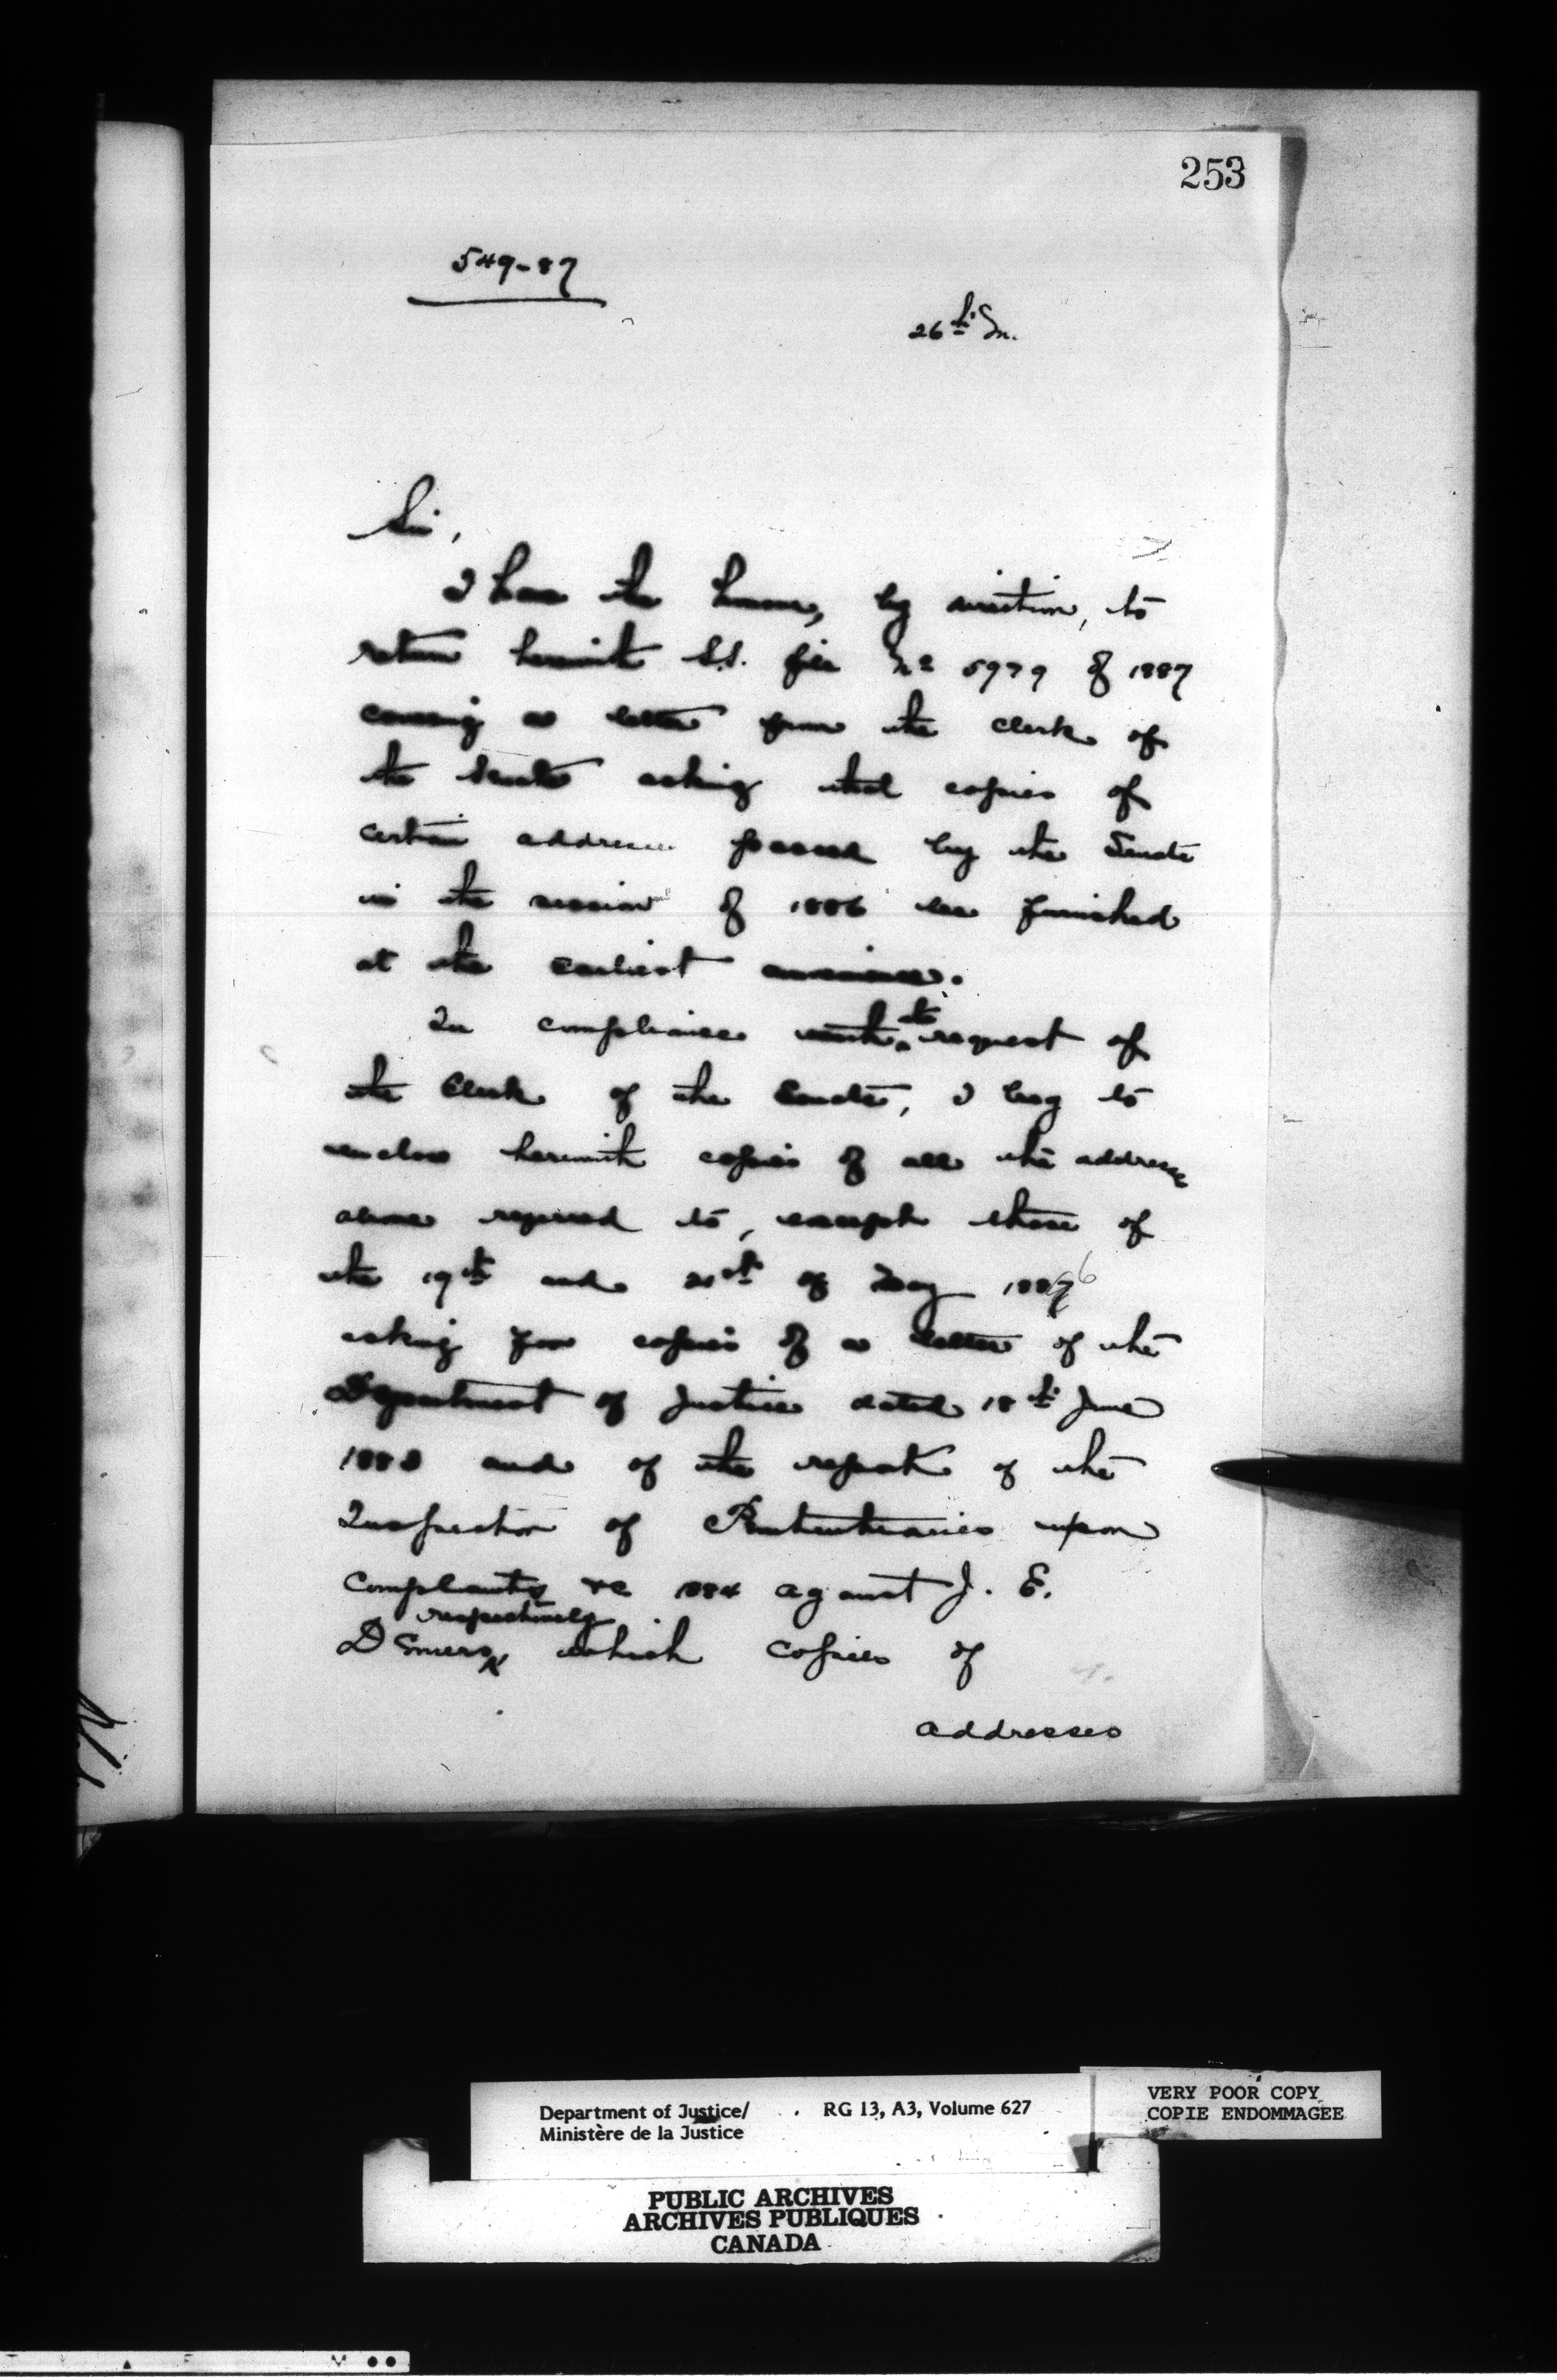 253
549-87
26th In.
Sir,
I have the honour, by direction, to
return herewith S.S. file No 5979 of 1887
covering a letter from the Clerk of
the Senate asking that copies of
certain addresses passed by the Senate
in the session of 1886 be furnished
at the earliest
In compliance with the request of
the Clerk of the Senate, I beg to
enclose herewith copies of all the addresses
above referred to, except those of
the 19th and 21st of May 1886
asking for copies of a letter of the
Department of Justice dated 18th June
1883 and of the report of the
Inspector of Penitentiaries upon
Complaints re 1884 against J. E.
respectively
which copies of
addresses
Department of Justice/
Ministère de la Justice
RG 13, A3, Volume 627
VERY POOR COPY
COPIE ENDOMMAGEE
PUBLIC ARCHIVES
ARCHIVES PUBLIQUES
CANADA